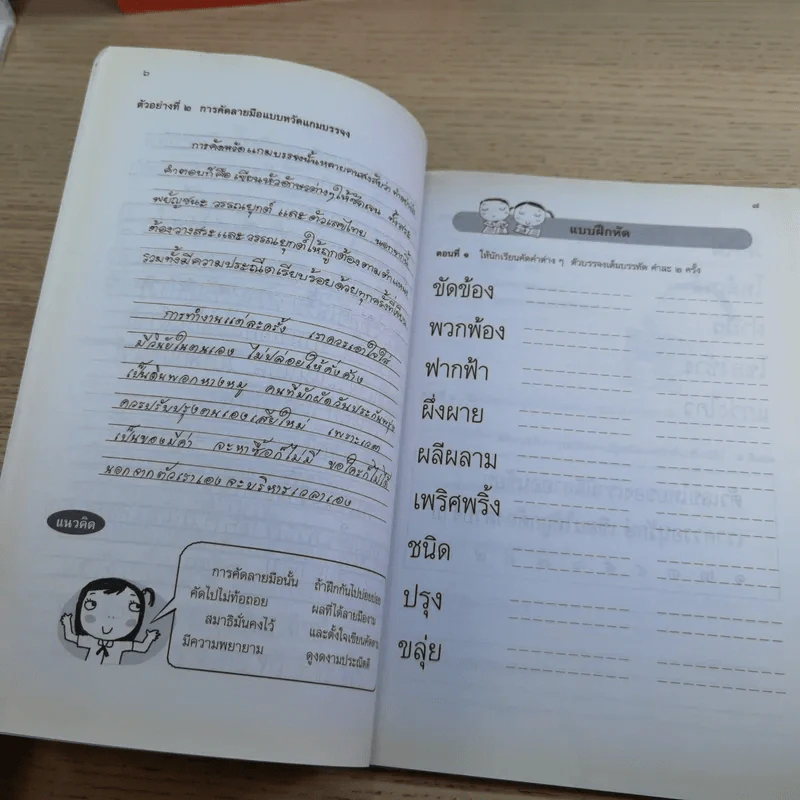 ๖
ตัวอย่างที่ ๒ การคัดลายมือแบบหวัดแกมบรรจง
การคัดหวัดแกมบรรจงนั้นหลายคนสงสัยว่า
คำตอบก็คือ เขียนหัวอักษรต่างๆ ให้ชัดเจน ทั้ง
พยัญชนะ วรรณยุกต์ และตัวเลขไทย นอกจากนี้
ต้องวางสระและวรรณยุกต์ให้ถูกต้องตามตำแหน่ง
รวมทั้งมีความประณีตเรียบร้อยด้วยทุกครั้งที่
การทำงานแต่ละครั้ง เราควรเอาใจใส่
มีวินัยในตนเอง ไม่ปล่อยให้คั่งค้าง
เป็นดินพอกหางหมู คนที่มักผัดวันประกันพรุ่ง
ควรปรับปรุงตนเองเสียใหม่ เพราะเวลา
เป็นของมีค่า จะหาซื้อก็ไม่มี ขอใครก็ไม่ได้
นอกจากตัวเราเองจะบริหารเวลาเอง
แนวคิด
การคัดลายมือนั้น ถ้าฝึกกันไปบ่อยบ่อย
คัดไปไม่ท้อถอย ผลที่ได้ลายมืองาม
สมาธิมั่นคงไว้ และตั้งใจเขียนคัดตาม
มีความพยายาม ดูงดงามประณีตดี
๗
แบบฝึกหัด
ตอนที่ ๑ ให้นักเรียนคัดคำต่าง ๆ ตัวบรรจงเต็มบรรทัด คำละ ๒ ครั้ง
ขัดข้อง
พวกพ้อง
ฟากฟ้า
ผึ่งผาย
ผลีผลาม
เพริศพริ้ง
ชนิด
ปรุง
ขลุ่ย